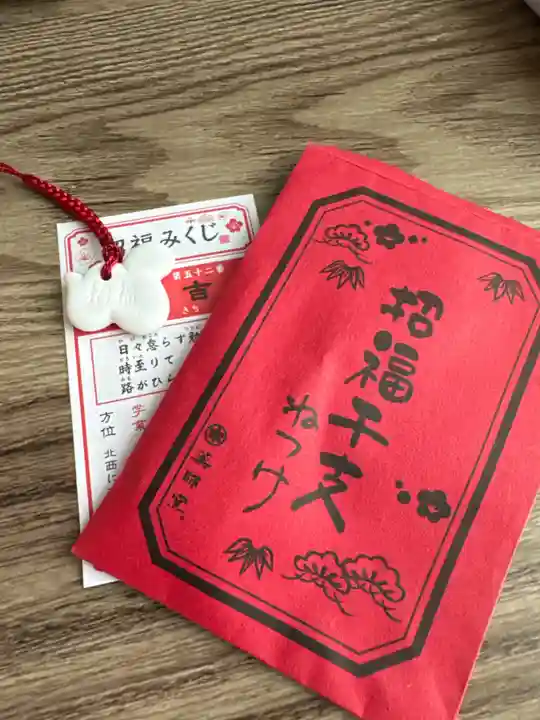 招福みくじ
第二十五番
吉
きち
日々怠らず
時至りて
路がひら
方位 北西に
学業
招福干支
ねつけ